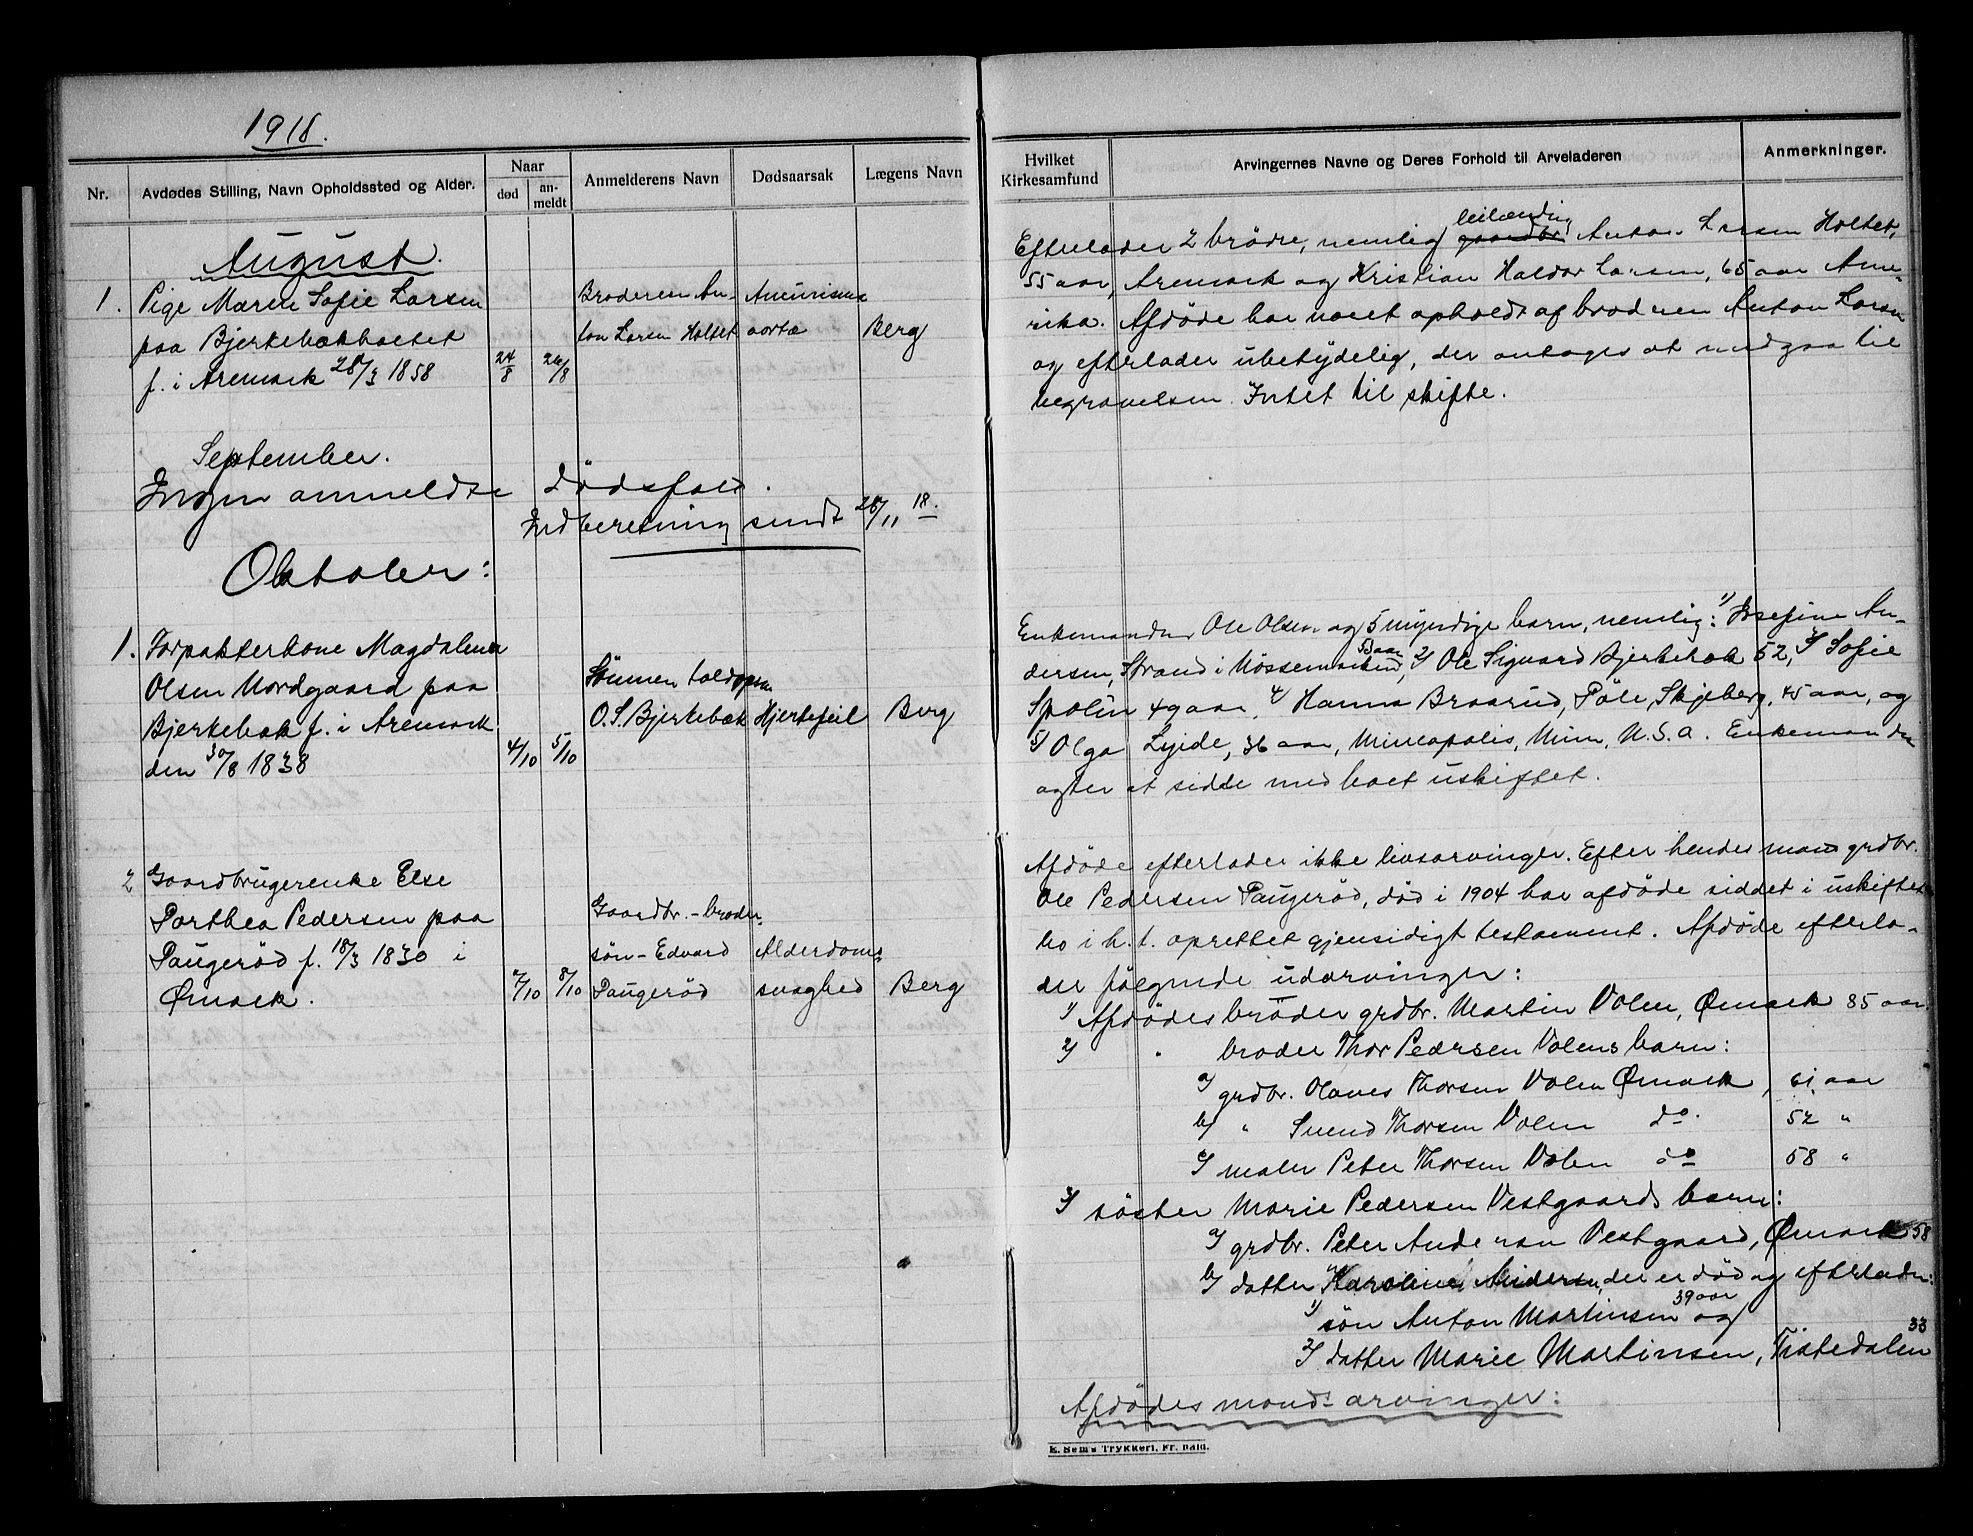 1918.
Nr.
Avdødes Stilling, Navn Opholdssted og Alder.
Naar
død
an-
meldt
Anmelderens Navn
Dødsaarsak
Lægens Navn
August.
1.
Pige Maren Sofie Larsen
paa Bjerkebækholtet
f. i Aremark 28/3 1858
24/8
26/8
Broderen An-
ton Larsen Holtet
Aneurisma
aortæ
Berg
September.
Ingen anmeldte dødsfald.
Indberetning sendt 28/11 18.
Oktober:
1.
Forpakterkone Magdalena
Olsen Nordgaard paa
Bjerkebæk f. i Aremark
den 30/8 1838
4/10
5/10
Sønnen toldopsm
O. S. Bjerkebæk
Hjertefeil
Berg
2
Gaardbrugerenke Else
Dorthea Pedersen paa
Paugerød f. 18/3 1830 i
Ømark.
7/10
8/10
Gaardbr. - broder
søn - Edvard
Paugerød
Alderdoms-
svaghed
Berg
Hvilket
Kirkesamfund
Arvingernes Navne og Deres Forhold til Arveladeren
Anmerkninger.
leilænding
Efterlader 2 brødre, nemlig gaardbr Anton Larsen Holtet,
55 aar, Aremark og Kristian Haldor Larsen, 65 aar Ame-
rika. Afdøde har været opholdt af broderen Anton Larsen
og efterlader ubetydelig, der antages at medgaa til
begravelsen. Intet til skifte.
Enkemanden Ole Olsen og 5 myndige barn, nemlig: 1) Josefine An-
dersen, Strand i Nössemarken, 55 aar, 2) Ole Sigvard Bjerkebæk 52, 3) Sofie
Spolin 49 aar, 4) Hanna Braarud, Pöle, Skjeberg, 45 aar, og
5) Olga Lyide, 36 aar, Mineapolis, Minn, U.S.A. Enkemanden
agter at sidde med boet uskiftet.
Afdøde efterlader ikke livsarvinger. Efter hendes mand grdbr.
Ole Pedersen Paugerød, død i 1904 har afdøde siddet i uskiftet
bo i h. t. oprettet gjensidigt testament. Afdøde efterla-
der følgende udarvinger:
1) Afdødes brøder grdbr. Martin Volen, Ømark 85 aar.
2) " broder Thor Pedersen Volens barn:
a) grdbr. Olaves Thorsen Volen Ømark, 61 aar
b) " Svend Thorsen Volen do. 52 "
c) maler Peter Thorsen Volen do 58 "
3) søster Marie Pedersen Vestgaards barn:
a) grdbr. Peter Andersen Vestgaard, Ømark 58
b) datter Karoline Andersen, der er død og efterlader:
1) søn Anton Martinsen 39 aar og
2) datter Marie Martinsen, Tistedalen 33
Afdødes mands arvinger:
E. Sem's Trykkeri, Fr. hald.